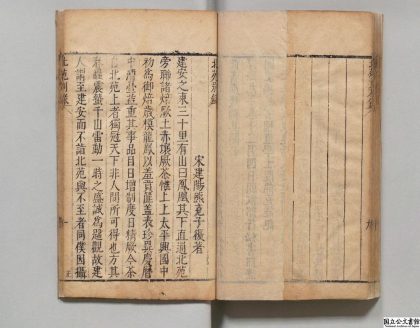 北苑別錄
宋建陽熊克子復著
建安之東三十里有山曰鳳凰其下直通北苑
旁聯諸焙厥土赤壤厥茶惟上上太平興國中
初為御焙歲模龍鳳以羞貢篚蓋表珍異慶曆
中漕臺益重其事品目日增制度日精厥今茶
自北苑上者獨冠天下非人間所可得也方其
春蟲震蟄千山雷動一之盛誠為觀故建
人謂至建安而不詣北苑與不至者同僕因攝
北苑別錄
国立公文書館